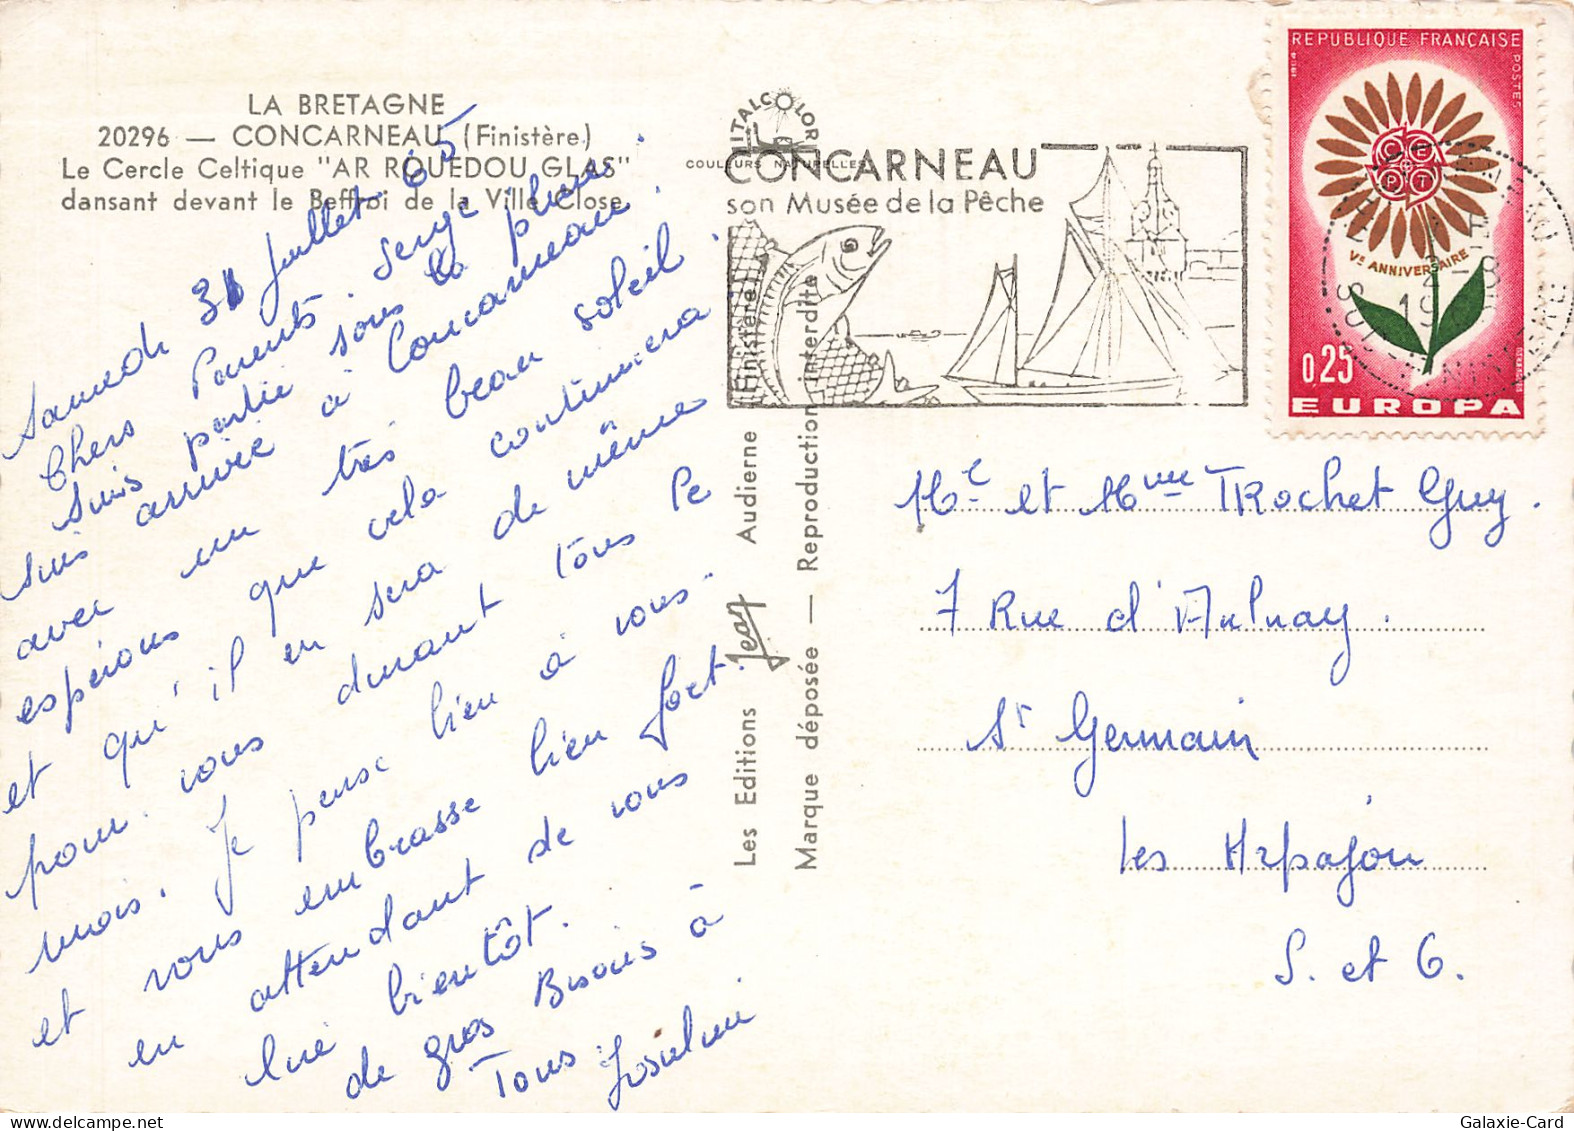 LA BRETAGNE
20296 — CONCARNEAU (Finistère)
Le Cercle Celtique "AR ROUEDOU GLAS"
dansant devant le Beffroi de la Ville Close.
Samedi 31 Juillet 65
Chers Parents Serge
Suis partie sous la pluie.
suis arrivée à Concarneau
avec un très beau soleil.
espérons que cela continuera
et qu'il en sera de même
pour vous durant tous le
mois. Je pense bien à vous.
et vous embrasse bien fort.
en attendant de vous
lire bientôt.
de gros Bisous à
Tous
VITALCOLOR
COULEURS NATURELLES
CONCARNEAU
son Musée de la Pêche
Les Editions Jean Audierne (Finistère)
Marque déposée — Reproduction interdite
REPUBLIQUE FRANÇAISE
POSTES
1964
C E P T
Ve ANNIVERSAIRE
0,25
EUROPA
Mr et Mme TRochet Guy.
7 Rue d'Aulnay.
St Germain
les Arpajon
S. et O.
Galaxie-Card